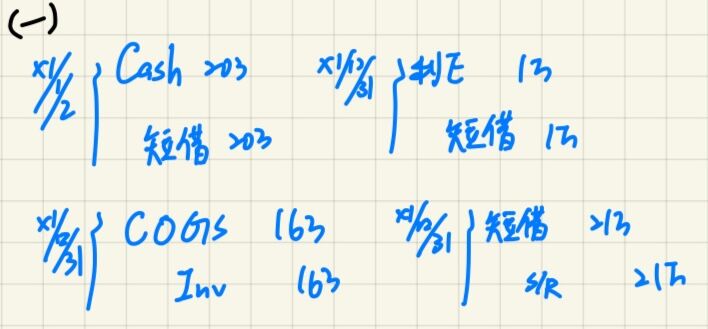 (一)
x1/1/2 Cash 20万
短借 20万
x1/12/31 利E 1万
短借 1万
x1/12/31 COGS 16万
Inv 16万
x1/12/31 短借 21万
S/R 21万